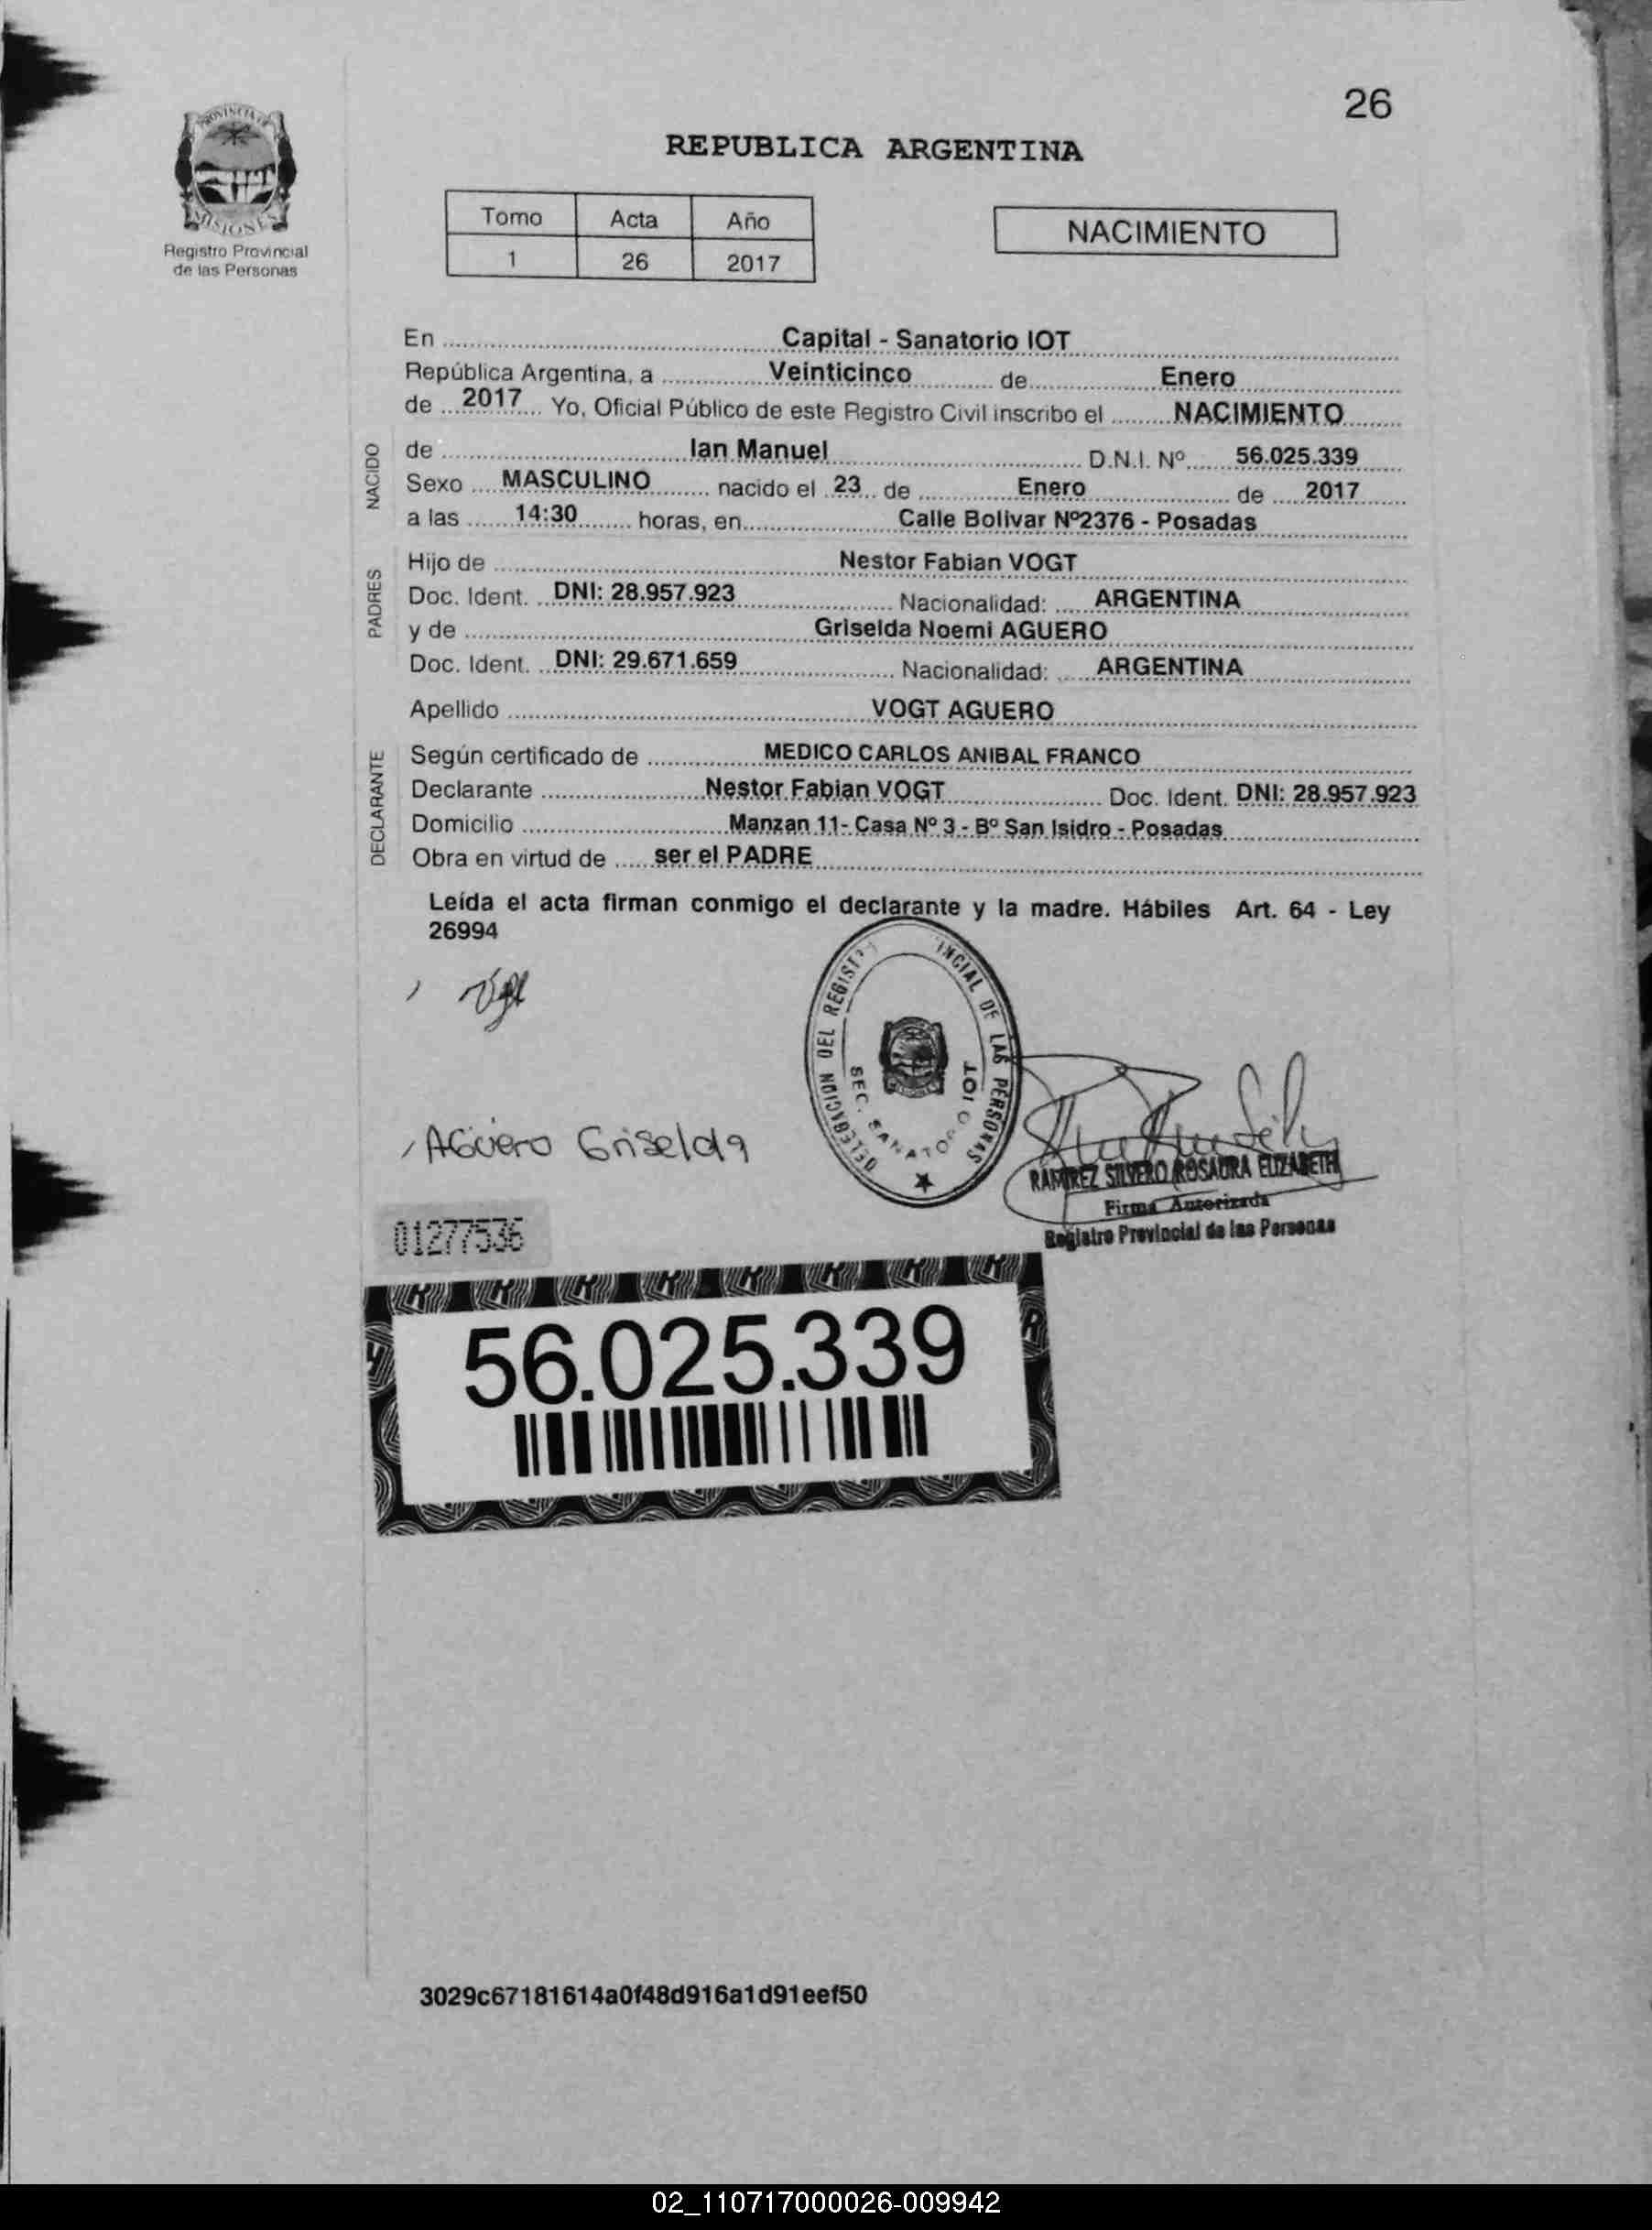 26
PROVINCIA DE
MISIONES
Registro Provincial
de las Personas
REPUBLICA ARGENTINA
Tomo Acta Año
1 26 2017
NACIMIENTO
En Capital - Sanatorio IOT
República Argentina, a Veinticinco de Enero
de 2017 Yo, Oficial Público de este Registro Civil inscribo el NACIMIENTO
NACIDO
de Ian Manuel D.N.I. Nº 56.025.339
Sexo MASCULINO nacido el 23 de Enero de 2017
a las 14:30 horas, en Calle Bolivar Nº2376 - Posadas
PADRES
Hijo de Nestor Fabian VOGT
Doc. Ident. DNI: 28.957.923 Nacionalidad: ARGENTINA
y de Griselda Noemi AGUERO
Doc. Ident. DNI: 29.671.659 Nacionalidad: ARGENTINA
Apellido VOGT AGUERO
DECLARANTE
Según certificado de MEDICO CARLOS ANIBAL FRANCO
Declarante Nestor Fabian VOGT Doc. Ident. DNI: 28.957.923
Domicilio Manzan 11- Casa Nº 3 - Bº San Isidro - Posadas
Obra en virtud de ser el PADRE
Leída el acta firman conmigo el declarante y la madre. Hábiles Art. 64 - Ley
26994
DELEGACION DEL REGISTRO PROVINCIAL DE LAS PERSONAS
SEC. SANATORIO IOT
AGüero Griselda
RAMIREZ SILVERO ROSAURA ELIZABETH
Firma Autorizada
Registro Provincial de las Personas
01277536
56.025.339
3029c67181614a0f48d916a1d91eef50
02_110717000026-009942